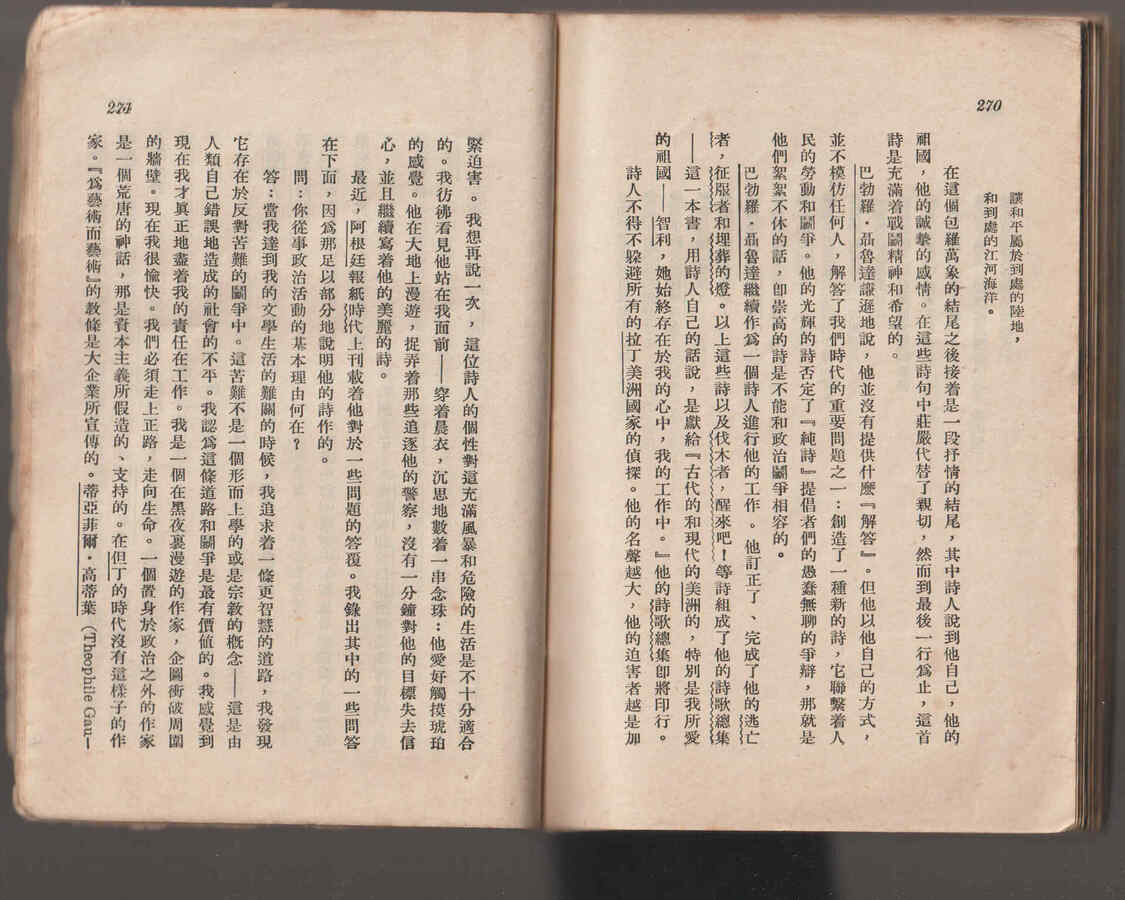 270
讓和平屬於到處的陸地，
和到處的江河海洋。
在這個包羅萬象的結尾之後接着是一段抒情的結尾，其中詩人說到他自己，他的
祖國，他的誠摯的感情。在這些詩句中莊嚴代替了親切，然而到最後一行爲止，這首
詩是充滿着戰鬭精神和希望的。
巴勃羅·聶魯達謙遜地說，他並沒有提供什麽『解答』。但他以他自己的方式，
並不模仿任何人，解答了我們時代的重要問題之一：創造了一種新的詩，它聯繫着人
民的勞動和鬭爭。他的光輝的詩否定了『純詩』提倡者們的愚蠢無聊的爭辯，那就是
他們絮絮不休的話，卽崇高的詩是不能和政治鬭爭相容的。
巴勃羅·聶魯達繼續作爲一個詩人進行他的工作。他訂正了、完成了他的逃亡
者，征服者和埋葬的燈。以上這些詩以及伐木者，醒來吧！等詩組成了他的詩歌總集
——這一本書，用詩人自己的話說，是獻給『古代的和現代的美洲的，特別是我所愛
的祖國——智利，她始終存在於我的心中，我的工作中。』他的詩歌總集卽將印行。
詩人不得不躲避所有的拉丁美洲國家的偵探。他的名聲越大，他的迫害者越是加
271
緊迫害。我想再說一次，這位詩人的個性對這充滿風暴和危險的生活是不十分適合
的。我彷彿看見他站在我面前——穿着晨衣，沉思地數着一串念珠：他愛好觸摸琥珀
的感覺。他在大地上漫遊，捉弄着那些追逐他的警察，沒有一分鐘對他的目標失去信
心，並且繼續寫着他的美麗的詩。
最近，阿根廷報紙時代上刊載着他對於一些問題的答覆。我錄出其中的一些問答
在下面，因爲那足以部分地說明他的詩作的。
問：你從事政治活動的基本理由何在？
答：當我達到我的文學生活的難關的時候，我追求着一條更智慧的道路，我發現
它存在於反對苦難的鬭爭中。這苦難不是一個形而上學的或是宗教的概念——這是由
人類自己錯誤地造成的社會的不平。我認爲這條道路和鬭爭是最有價値的。我感覺到
現在我才眞正地盡着我的責任在工作。我是一個在黑夜裏漫遊的作家，企圖衝破周圍
的牆壁。現在我很愉快。我們必須走上正路，走向生命。一個置身於政治之外的作家
是一個荒唐的神話，那是資本主義所假造的、支持的。在但丁的時代沒有這樣子的作
家。『爲藝術而藝術』的教條是大企業所宣傳的。蒂亞菲爾·高蒂葉（Theophile Gau—